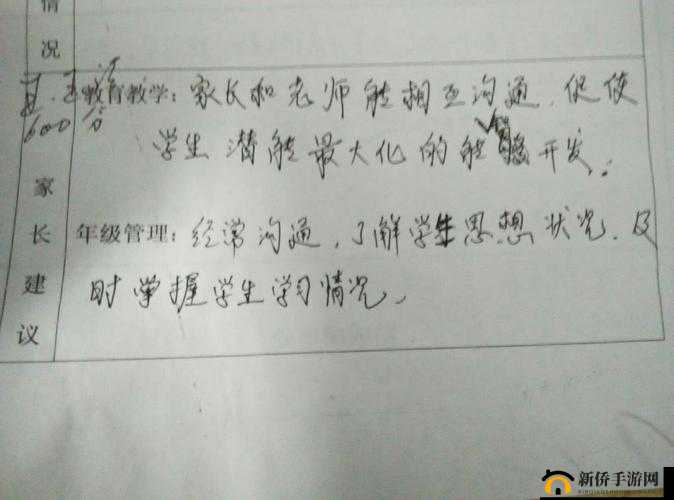 情
况
教育教学：家长和老师能相互沟通，促使
学生潜能最大化的能够开发。
家
长
建
议
年级管理：经常沟通，了解学生思想状况，及
时掌握学生学习情况。
600分
新侨手游网